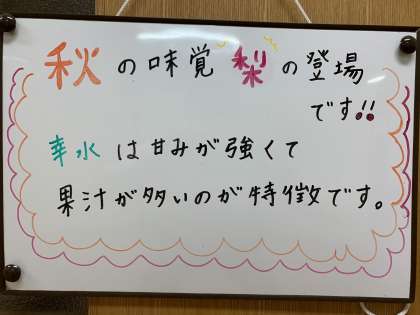 秋の味覚 梨の登場
です!!
幸水は甘みが強くて
果汁が多いのが特徴です。